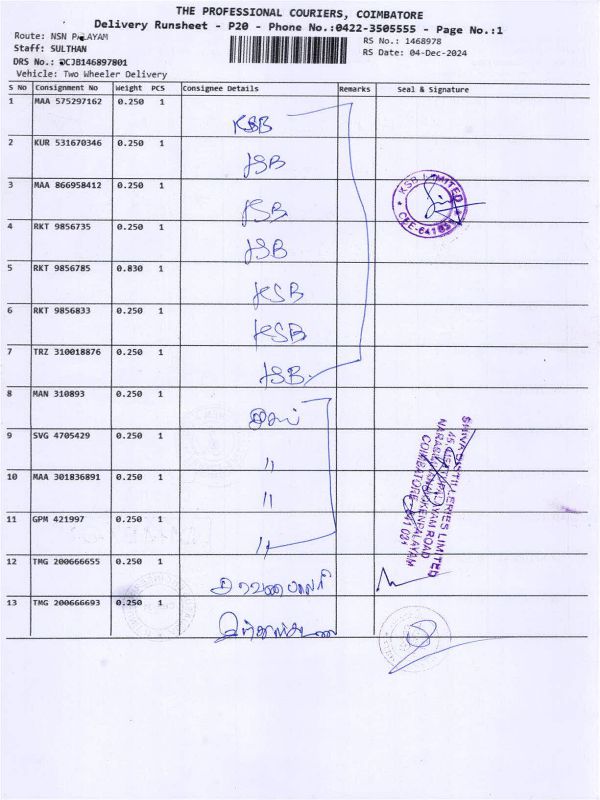 THE PROFESSIONAL COURIERS, COIMBATORE
Delivery Runsheet - P20 - Phone No.:0422-3505555 - Page No.:1
Route: NSN PALAYAM
RS No.: 1468978
Staff: SULTHAN
RS Date: 04-Dec-2024
DRS No.: DCJB146897801
Vehicle: Two Wheeler Delivery
S No Consignment No Weight PCS Consignee Details Remarks Seal & Signature
1 MAA 575297162 0.250 1 KSB
2 KUR 531670346 0.250 1 KSB
3 MAA 866958412 0.250 1 KSB
KSB LIMITED
CBE-641031
4 RKT 9856735 0.250 1 KSB
5 RKT 9856785 0.830 1 KSB
6 RKT 9856833 0.250 1 KSB
7 TRZ 310018876 0.250 1 KSB
8 MAN 310893 0.250 1
9 SVG 4705429 0.250 1 "
10 MAA 301836891 0.250 1 "
11 GPM 421997 0.250 1 "
SHIVA DISTILLERIES LIMITED
ROAD
COIMBATORE
12 TMG 200666655 0.250 1
13 TMG 200666693 0.250 1